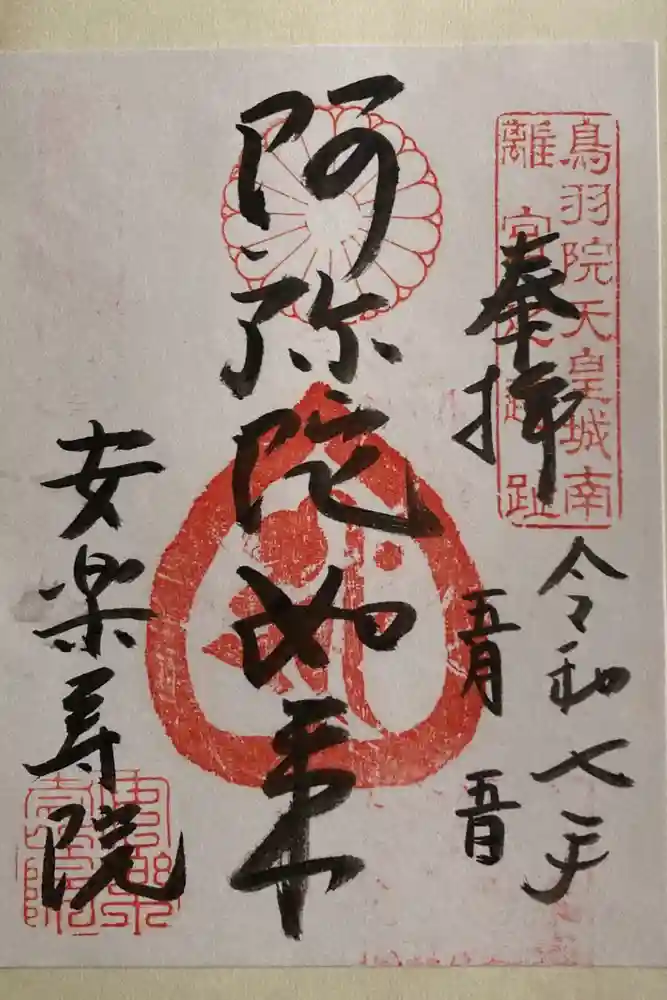 鳥羽院天皇城南
離宮之旧趾
奉拝
令和七年
五月
五日
阿弥陀如来
安楽寿院